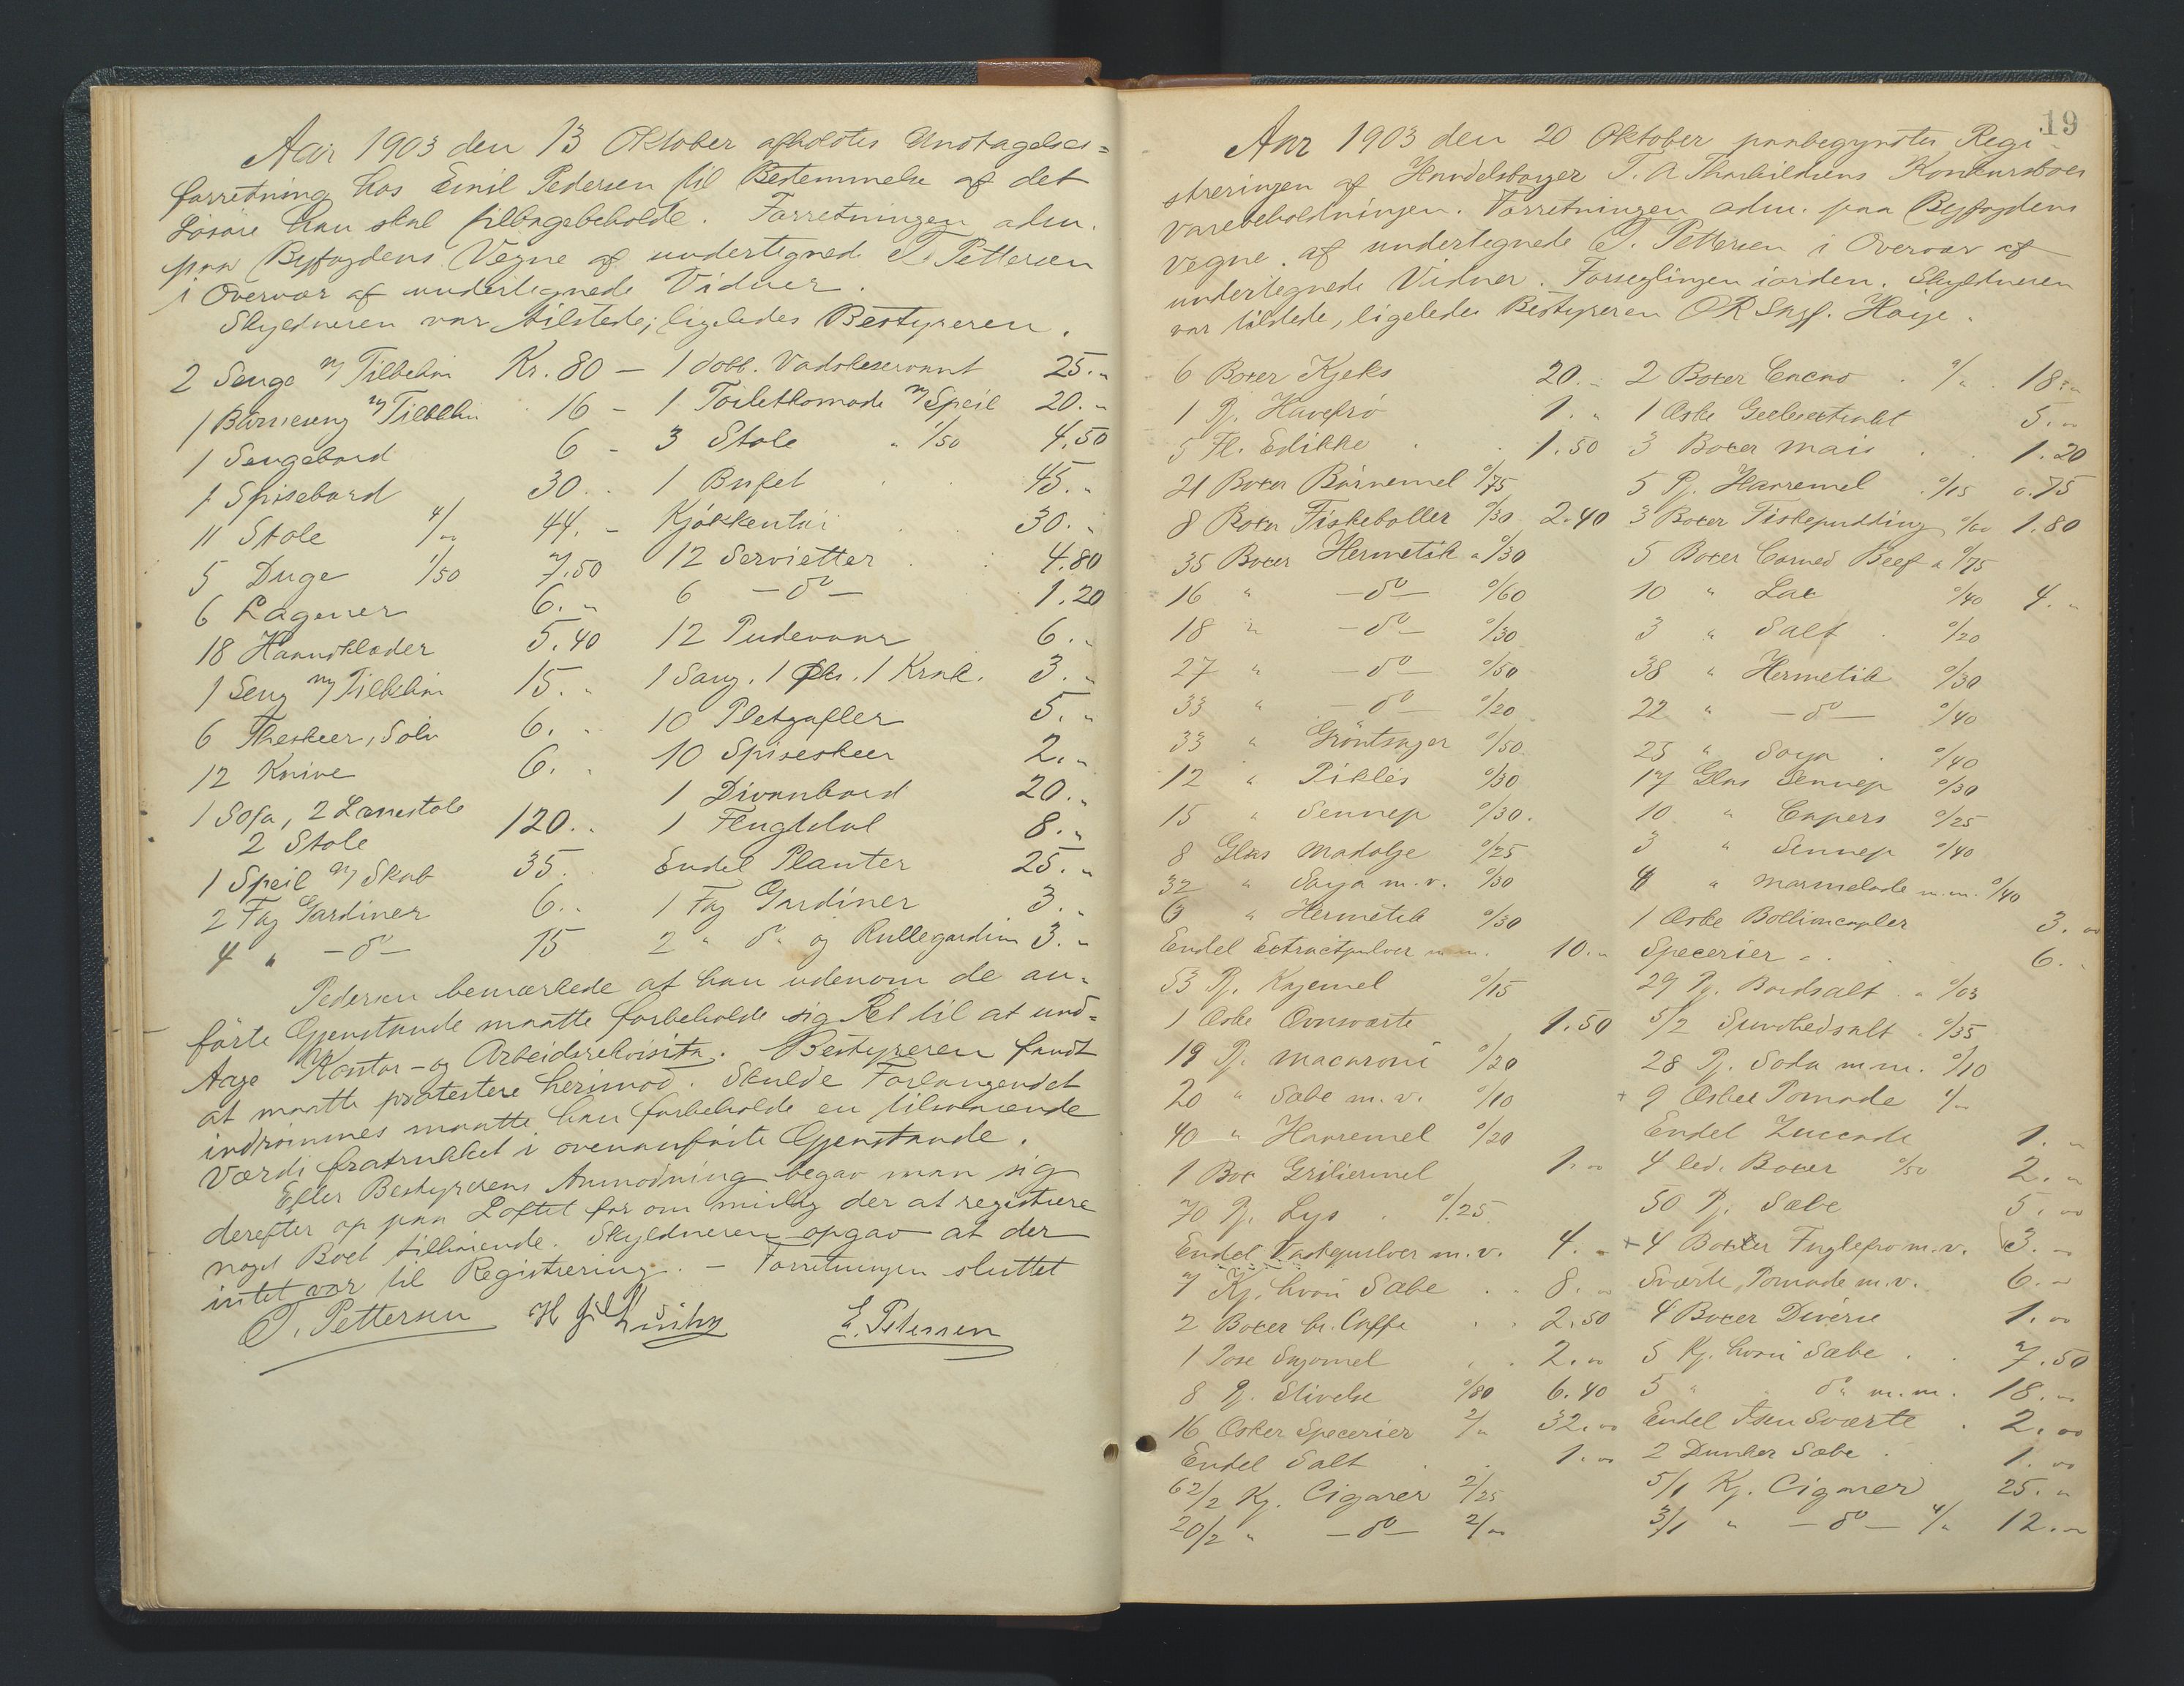 Aar 1903 den 13 Oktober afholdtes Undtagelses=
forretning hos Emil Pedersen til Bestemmelse af det
Løsøre han skal tilbagebeholde. Forretningen adm.
paa Byfogdens Vegne af undertegnede T. Pettersen
i Overvær af undertegnede Vidner.
Skyldneren var tilstede; ligeledes Bestyreren.
2 Senge m/ Tilbehør Kr. 80 –
1 Barneseng m/ Tilbehør 16 –
1 Sengebord 6 –
1 Spisebord 30 . .
11 Stole 4/00 44. –
5 Duge 1/50 7.50
6 Lagener 6. „
18 Haandklæder 5.40
1 Seng m/ Tilbehør 15. „
6 Theskeer, Sølv 6. „
12 Knive 6. „
1 Sofa, 2 Lænestole
2 Stole 120. .
1 Speil m/ Skab 35.
2 Fag Gardiner 6. .
4 „ – do – 15
1 dobb. Vadskeservant 25. „
1 Toiletkomode m/ Speil 20. „
3 Stole „ 1/50 4.50
1 Bufet 45. „
Kjøkkentøi 30. „
12 Servietter 4.80
6 – do – 1.20
12 Pudevaar 6. „
1 Saug. 1 Øks. 1 Krak. 3. „
10 Pletgafler 5. „
10 Spiseskeer 2. „
1 Divanbord 20. „
1 8. „
Endel Planter 25. „
1 Fag Gardiner 3. „
2 „ do „ og Rullegardin 3. „
Pedersen bemærkede at han udenom de an-
førte Gjenstande maatte forbeholde sig Ret til at und=
tage Kontor- og Arbeidsrekvisita. Bestyreren fandt
at maatte protestere herimod. Skulde Forlangendet
indrømmes maatte han forbeholde en tilsvarende
Værdi fratrukket i ovenanførte Gjenstande.
Efter Bestyrerens Anmodning begav man sig
derefter op paa Loftet for om mulig der at registrere
noget Boet tilhørende. Skyldneren opgav at der
intet var til Registrering. – Forretningen sluttet
T. Pettersen H E. Petersen
19
Aar 1903 den 20 Oktober paabegyndtes Regi-
streringen af Handelsborger T. A. Thorkildsens Konkursboes
Varebeholdningen. Forretningen adm. paa Byfogdens
Vegne af undertegnede T. Pettersen i Overvær af
undertegnede Vidner. Forseglingen iorden. Skyldneren
var tilstede, ligeledes Bestyreren OR Sagf. Høije.
6 Boxer Kjeks 20. –
1 Pj. Havefrø 1. „
5 Fl. Edikke 1.50
21 Boxer Børnemel 0/75
8 Boxer Fiskeboller 0/30 2.40
35 Boxer Hermetik a 0/30
16 „ – do – 0/60
18 „ – do – 0/30
27 „ – do – 0/50
33 „ – do – 0/20
33 „ Grøntsager 0/50
12 „ Pikles 0/30
15 „ Sennep 0/30.
8 Glas Madolje 0/25
32 „ Soya m.v. 0/30
6 „ Hermetik 0/30
Endel Extractpulver m.m. 10. „
53 Pj. Kagemel 0/15
1 Æske Ovnsværte 1.50
19 Pj. Macaroni 0/20
20 „ Sæbe m.v. 0/10
40 „ Havremel 0/20
1 Box Griliermel 1. 00
70 Pj. Lys 0/25
Endel Vaskepulver m.v. 4. „
7 Kj. hvid Sæbe 8. „
2 Boxer br. Caffe 2.50
1 Pose Sagomel 2. 00
8 Pj. Stivelse 0/80 6.40
16 Æsker Specerier 2/„ 32. 00
Endel Salt 1. 00
62/2 Kj. Cigarer 2/25
20/2 „ – do – 2/00
2 Boxer Cacao 9/„ 18. „
1 Æske Geleextrakt 5. „
3 Boxer Mais 1.20
5 Pj. Havremel 0/15 0.75
3 Boxer Fiskepudding 0/60 1.80
5 Boxer Corned Beef a 0/75
10 „ Lax 0/40 4. „
3 „ Salt 0/20
38 „ Hermetik 0/30
22 „ – do – 0/40
25 „ Soya 0/40
17 Glas Sennep 0/30
10 „ Capers 0/25
3 „ Sennep 0/40
8 „ Marmelade m.m. 0/40
1 Æske Bollioncapsler 3. 00
Specerier 6. „
29 Pj. Bordsalt a 0/03
5/2 Sundhedsalt 0/35
28 Pj. Soda m.m. 0/10
+ 9 Æsker Pomade 1/„
Endel Zuccade 1. „
4 led. Boxer 0/50 2. „
50 Pj. Sæbe 5. 00
+ 4 Boxer Fuglefrø m.v. 3. „
Sværte, Pomade m.v. 6. „
4 Boxer Diverse 1. 00
5 Kj. hvid Sæbe 7.50
5 „ do „ m.m. 18. „
Endel Sværte 2. 00
2 Dunker Sæbe 1. 00
5/1 Kj. Cigarer 25. „
3/1 „ – do – 4/„ 12. „